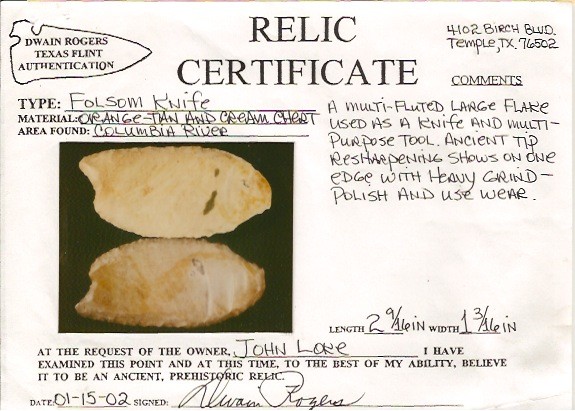 DWAIN ROGERS
TEXAS FLINT
AUTHENTICATION
RELIC
CERTIFICATE
4102 BIRCH BLVD.
TEMPLE, TX. 76502
COMMENTS
TYPE: FOLSOM KNIFE
MATERIAL: ORANGE-TAN AND CREAM CHERT
AREA FOUND: COLUMBIA RIVER
A MULTI-FLUTED LARGE FLAKE
USED AS A KNIFE AND MULTI-
PURPOSE TOOL. ANCIENT TIP
RESHARPENING SHOWS ON ONE
EDGE WITH HEAVY GRIND-
POLISH AND USE WEAR.
LENGTH 2 9/16 IN WIDTH 1 3/16 IN
AT THE REQUEST OF THE OWNER, JOHN I HAVE
EXAMINED THIS POINT AND AT THIS TIME, TO THE BEST OF MY ABILITY, BELIEVE
IT TO BE AN ANCIENT, PREHISTORIC RELIC.
DATE: 01-15-02 SIGNED: Dwain Rogers